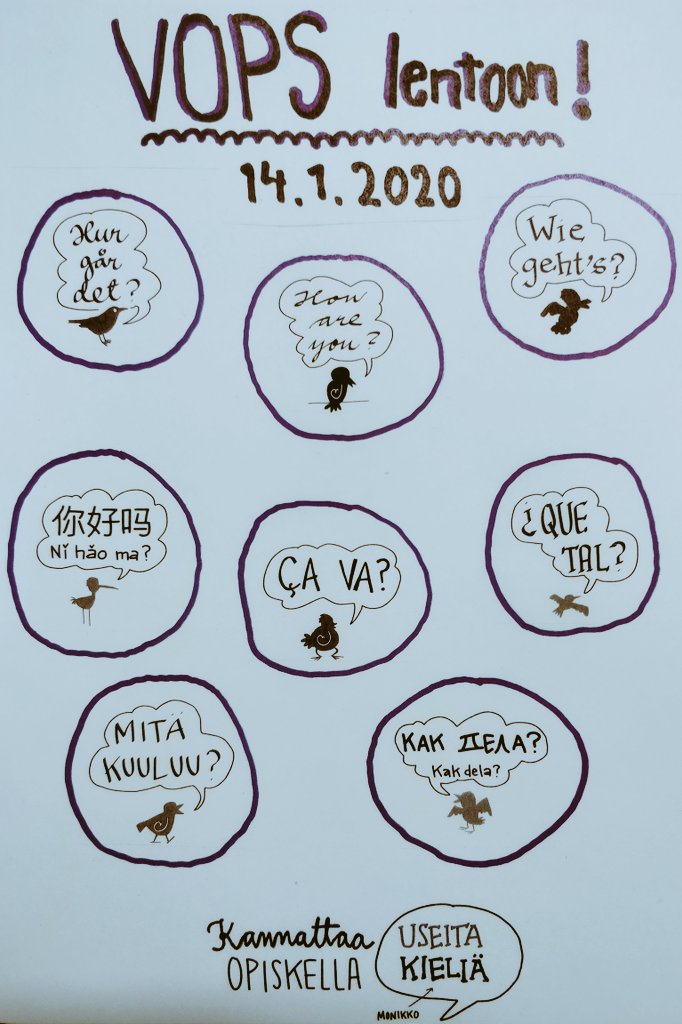 VOPS lentoon!
14.1.2020
Hur
går
det?
How
are
you?
Wie
geht's?
你好吗
Nǐ hǎo ma?
ÇA VA?
¿QUE
TAL?
MITÄ
KUULUU?
КАК ДЕЛА?
Kak dela?
Kannattaa
OPISKELLA
USEITA
KIELIÄ
MONIKKO